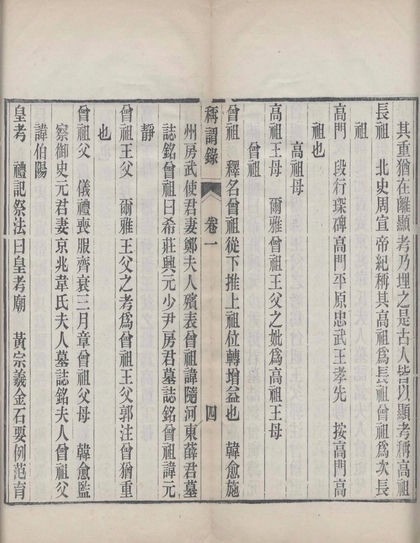 其重猶在離顯考乃理之是古人皆以顯考稱高
長祖　北史周宣帝紀稱其高祖爲長祖曾祖爲次長
祖
高門　段行琛碑高門平原忠武王孝先　按高門高
祖也
高祖母
高祖王母　爾雅曾祖王父之妣爲高祖王母
曾祖
曾祖　釋名曾祖從下推上祖位轉增益也　韓愈施
稱謂錄　卷一　四
州房武使君妻鄭夫人殯表曾祖諱隨河東薛君墓
誌銘曾祖曰希莊興元少尹房君墓誌銘曾祖諱元
靜
曾祖王父　爾雅王父之考爲曾祖王父郭注曾猶重
也
曾祖父　儀禮喪服齊衰三月章曾祖父母　韓愈監
察御史元君妻京兆韋氏夫人墓誌銘夫人曾祖父
諱伯陽
皇考　禮記祭法曰皇考廟　黃宗羲金石要例范育